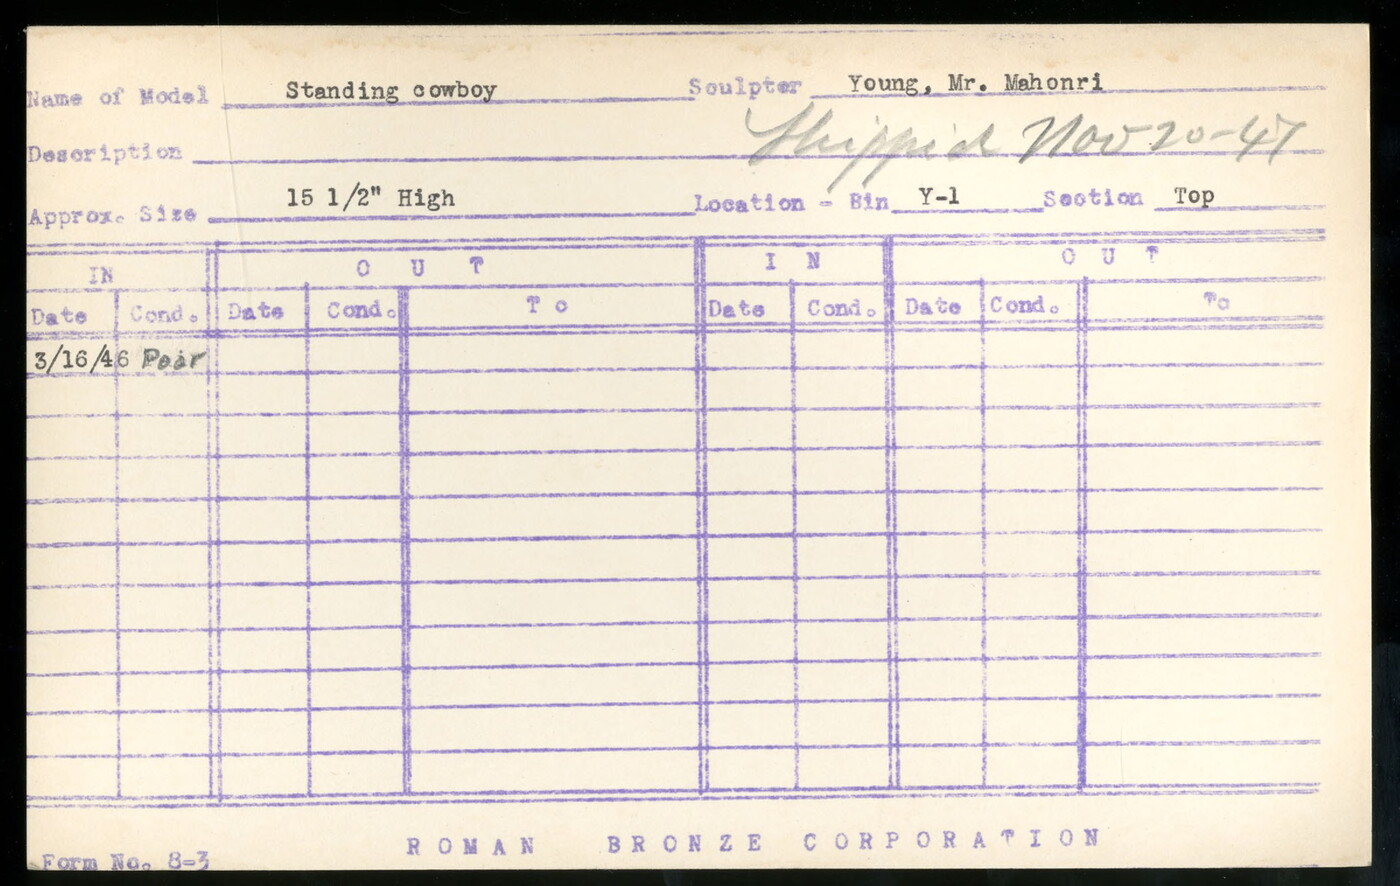 Name of Model Standing cowboy Sculpter Young, Mr. Mahonri
Shipped Nov 20-47
Description
Approx. Size 15 1/2" High Location - Bin Y-1 Section Top
IN OUT IN OUT
Date Cond. Date Cond. To Date Cond. Date Cond. To
3/16/46 Poor
ROMAN BRONZE CORPORATION
Form No. 8-3